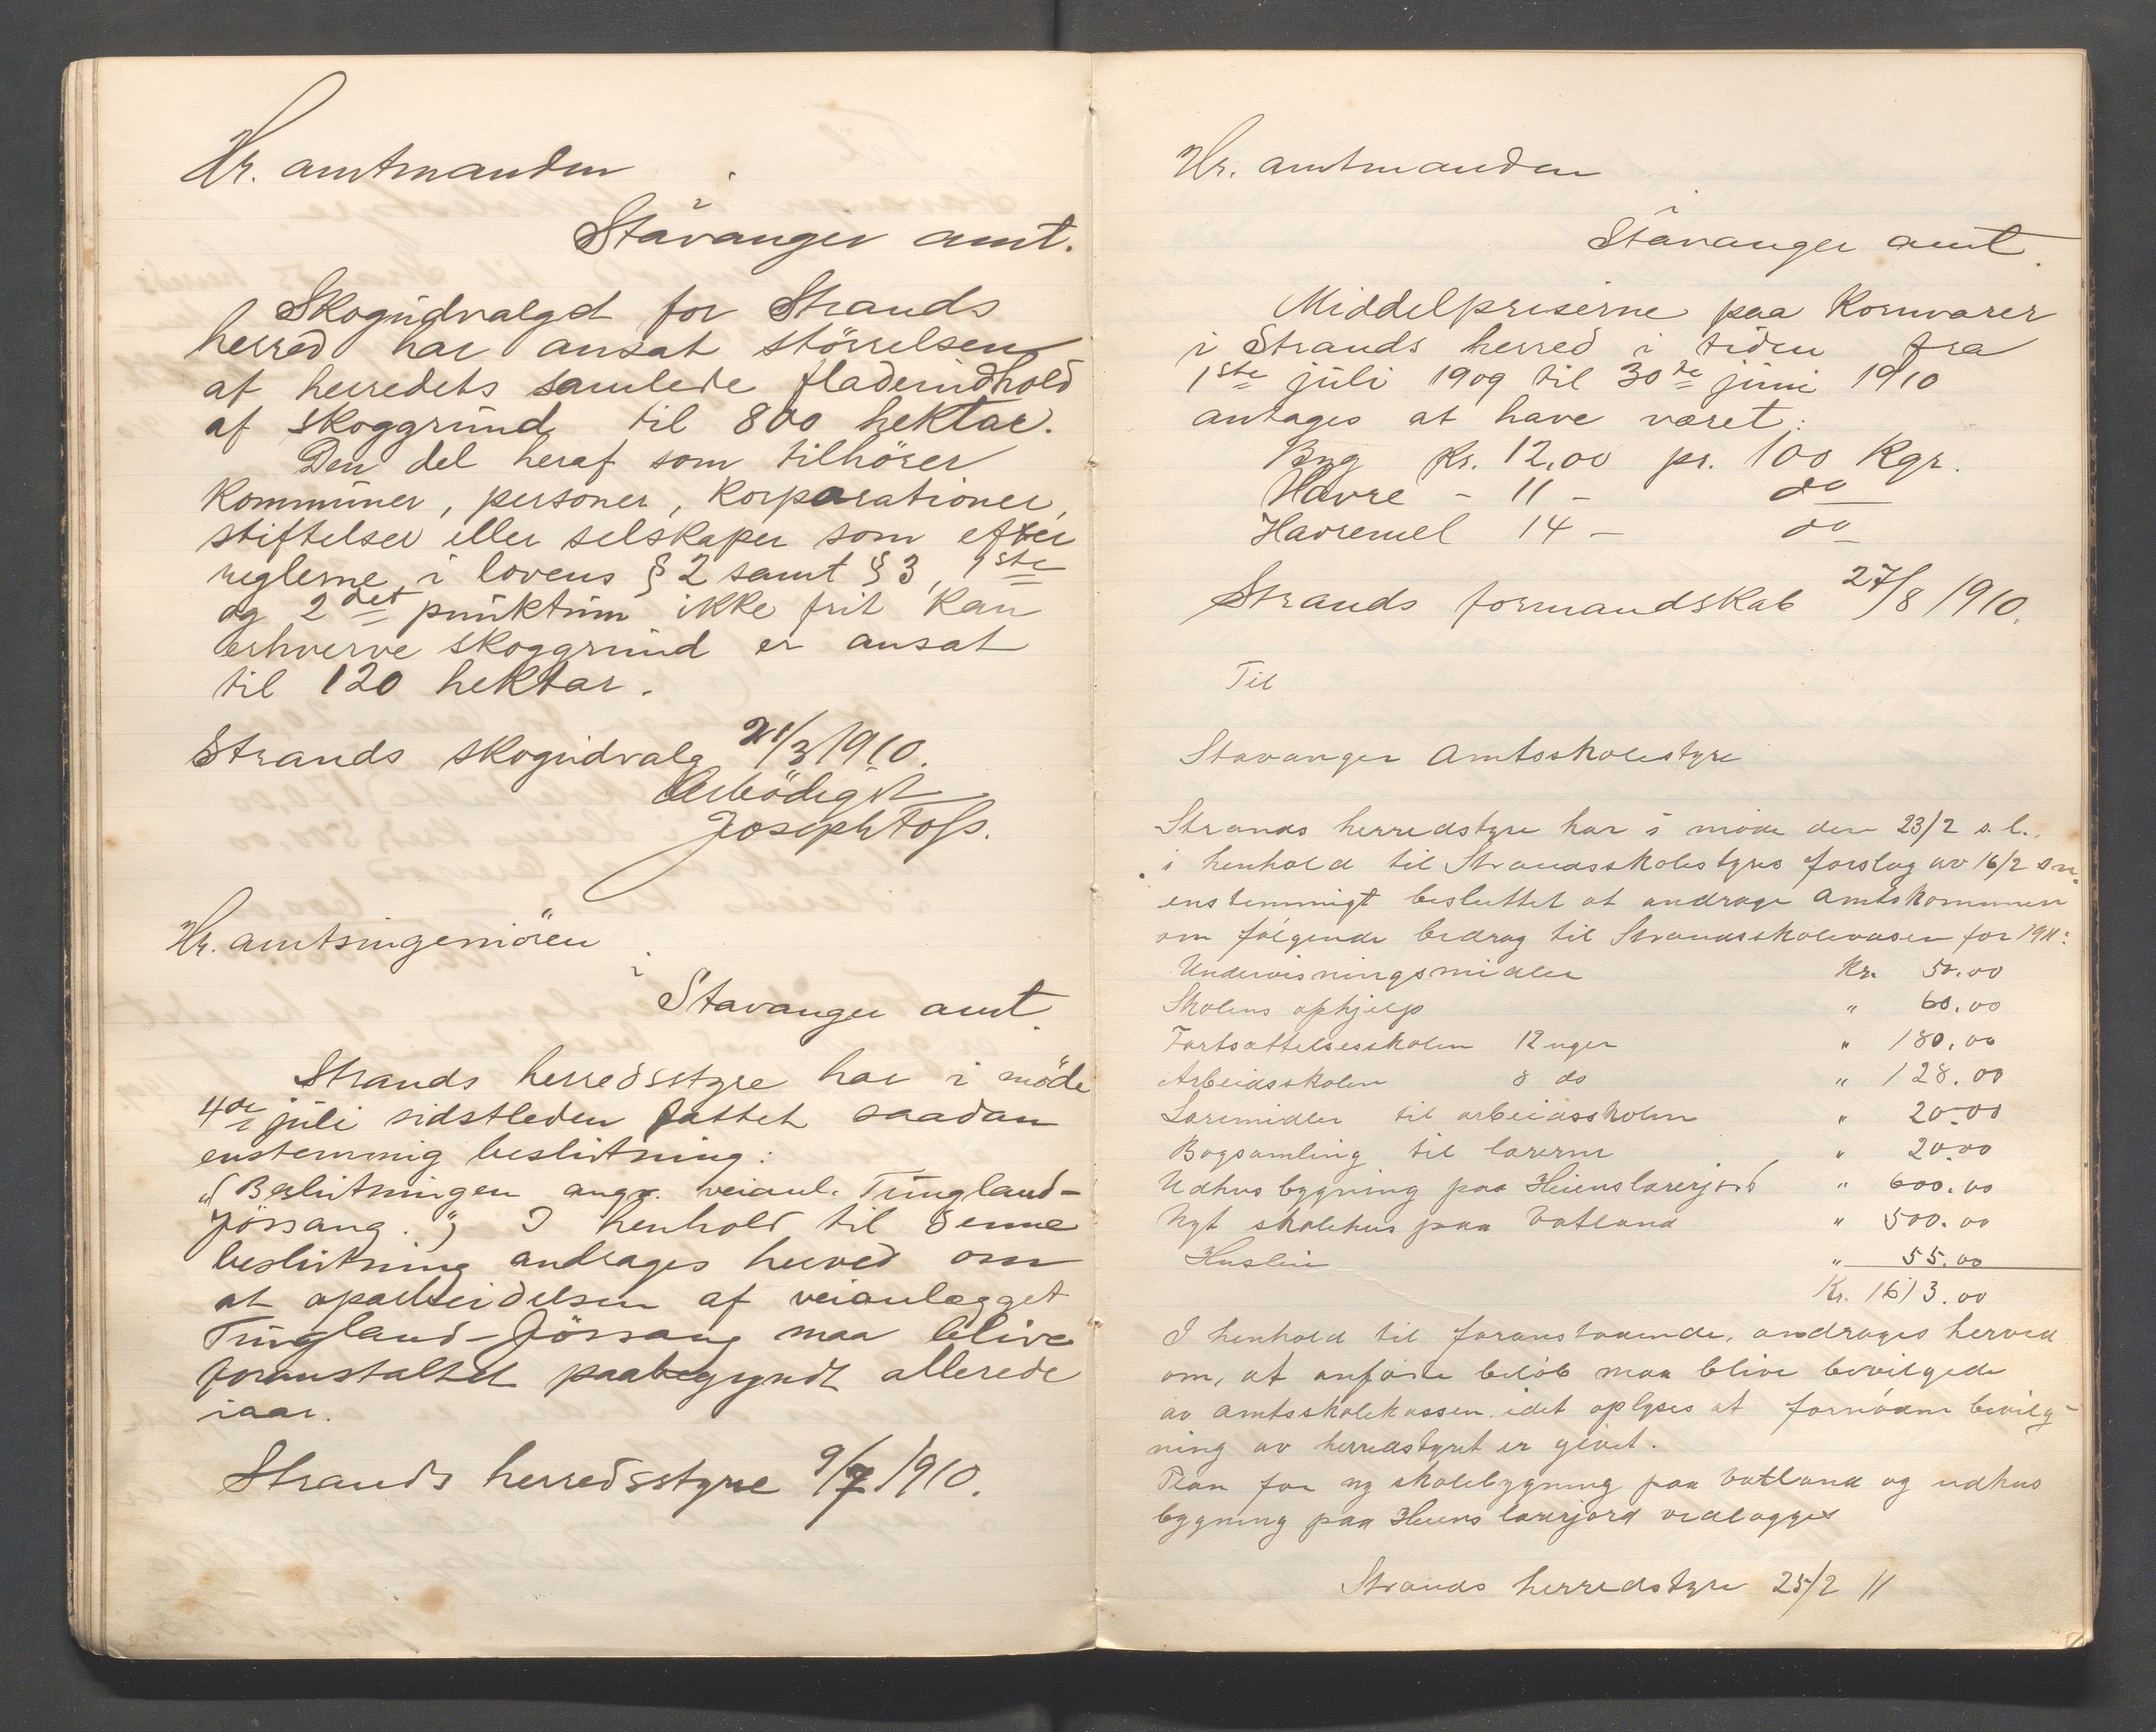 Hr. amtmanden
i
Stavanger amt.
Skogudvalget for Strands
herred har ansat störrelsen
af herredets samlede fladeindhold
af skoggrund til 800 hektar.
Den del heraf som tilhörer
kommuner, personer, korporationer,
stiftelser eller selskaper som efter
reglerne i lovens § 2 samt § 3, 1ste
og 2det punktum ikke frit kan
erhverve skoggrund er ansat
til 120 hektar.
Strands skogudvalg 21/3 1910.
Ærbödigst
Joseph Tofs.
Hr. amtsingeniören
i
Stavanger amt.
Strands herredsstyre har i möde
4de juli sidstleden fattet saadan
enstemmig beslutning:
"(Beslutningen angr. veianl. Tungland-
Jössang.") I henhold til denne
beslutning andrages herved om
at oparbeidelsen af veianlægget
Tungland-Jössang maa blive
foranstaltet paabegyndt allerede
iaar.
Strands herredsstyre 9/7 1910.
Hr. amtmanden
i
Stavanger amt.
Middelpriserne paa Kornvarer
i Strands herred i tiden fra
1ste juli 1909 til 30te juni 1910
antages at have været:
Byg Kr. 12,00 pr. 100 Kgr.
Havre - 11 - do
Havremel 14 - do
Strands formandskab 27/8 1910.
Til
Stavanger Amtsskolestyre
Strands herredstyre har i møde den 23/2 s. l.
i henhold til Strandsskolestyres forslag av 16/2
enstemmigt besluttet at andrage Amtskommunen
om følgende bidrag til Strandsskolevæsen for 1911:
Undervisningsmidler Kr. 50.00
Skolens ophjelp " 60.00
Fortsættelsesskolen 12 uger " 180.00
Arbeidsskolen 8 do " 128.00
Læremidler til arbeidsskolen " 20.00
Bogsamling til lærerne " 20.00
Udhusbygning paa Heienslærerjord " 600.00
Nyt skolehus paa Vatland " 500.00
Husleie " 55.00
Kr. 1613.00
I henhold til foranstaaende, andrages herved
om, at anførte beløb maa blive bevilgede
av amtsskolekassen idet oplyses at fornøden bevilg-
ning av herredstyret er givet.
Plan for ny skolebygning paa Vatland og udhus
bygning paa Heiens lærerjord vedlægges
Strands herredstyre 25/2 11